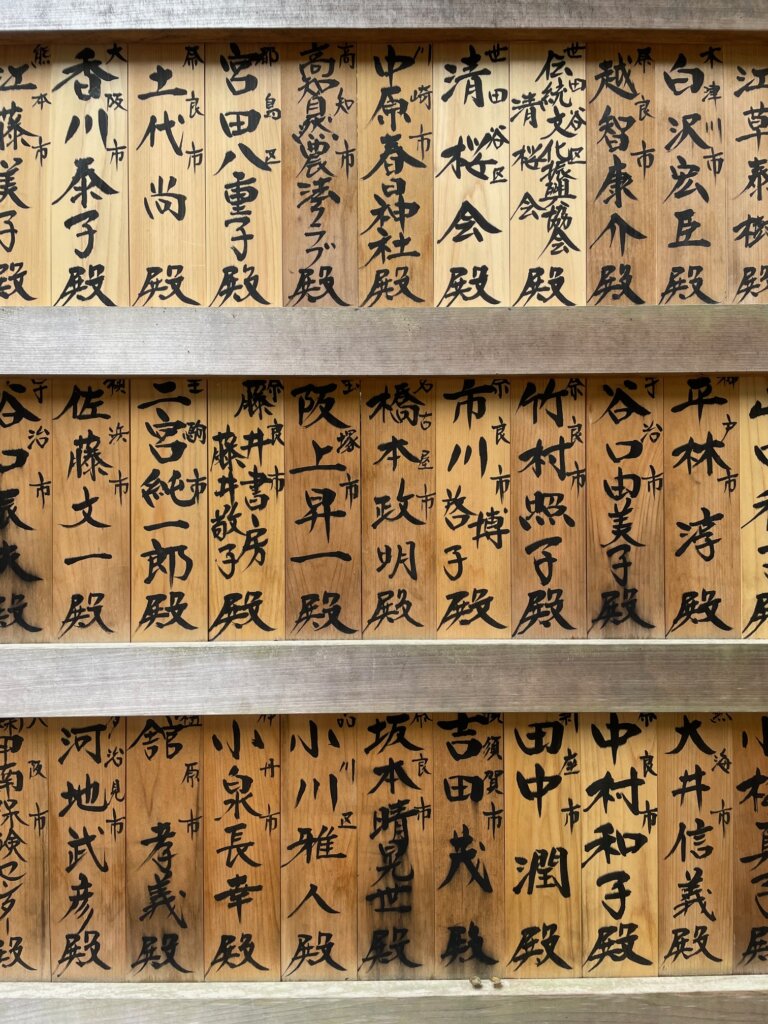 江草泰 殿
木津川市
白沢宏臣殿
奈良市
越智康介殿
世田谷区
伝統文化振興協会
清桜会
殿
世田谷区
清桜会殿
川崎市
中原春日神社殿
高知市
高知自然農法クラブ殿
都島区
宮田八重子殿
奈良市
土代尚殿
大阪市
香川泰子殿
熊本市
江藤美子殿
神戸市
平林淳殿
宇治市
谷口由美子殿
奈良市
竹村照子殿
奈良市
市川博
啓子
殿
名古屋市
橋本政明殿
宝塚市
阪上昇一殿
奈良市
藤井書房
藤井敬子
殿
生駒市
二宮純一郎殿
横浜市
佐藤文一殿
宇治市
谷口辰夫殿
海市
大井信義殿
奈良市
中村和子殿
新座市
田中潤殿
横須賀市
吉田茂殿
奈良市
坂本晴 世殿
品川区
小川雅人殿
伊丹市
小泉長幸殿
橿原市
舘孝義殿
多治見市
河地武彦殿
阪市
田南保険センター殿